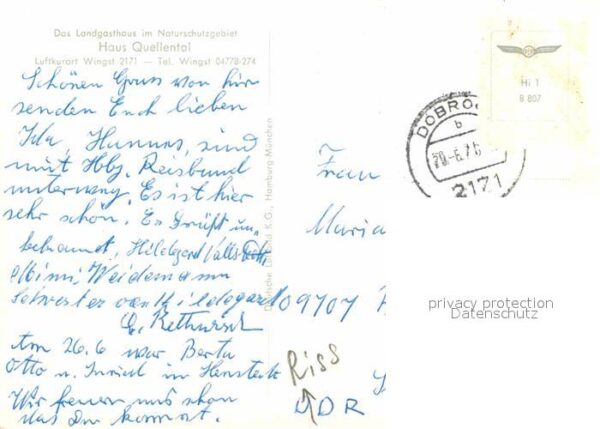 Das Landgasthaus im Naturschutzgebiet
Haus Quellental
Luftkurort Wingst 2171 — Tel. Wingst 04778-274
Schönen Gruss von hir
senden Euch lieben
Ida, Hannes, sind
mit Hbg. Reisbund
unterweg. Es ist hier
sehr schön. Es Grüßt un
bekannt, Hildegard
Mimi Weidemann
Schwester von Hildegard
E. Rethwisch
Am 26.6 war Berta
Otto u. Ingrid in Henstedt
Wir freuen uns schon
das Du kommst.
Hamburg-München
Frau
Maria
09707
DDR
Riss
DOBROCK
b
2171
Hi 1
B 807
privacy protection
Datenschutz